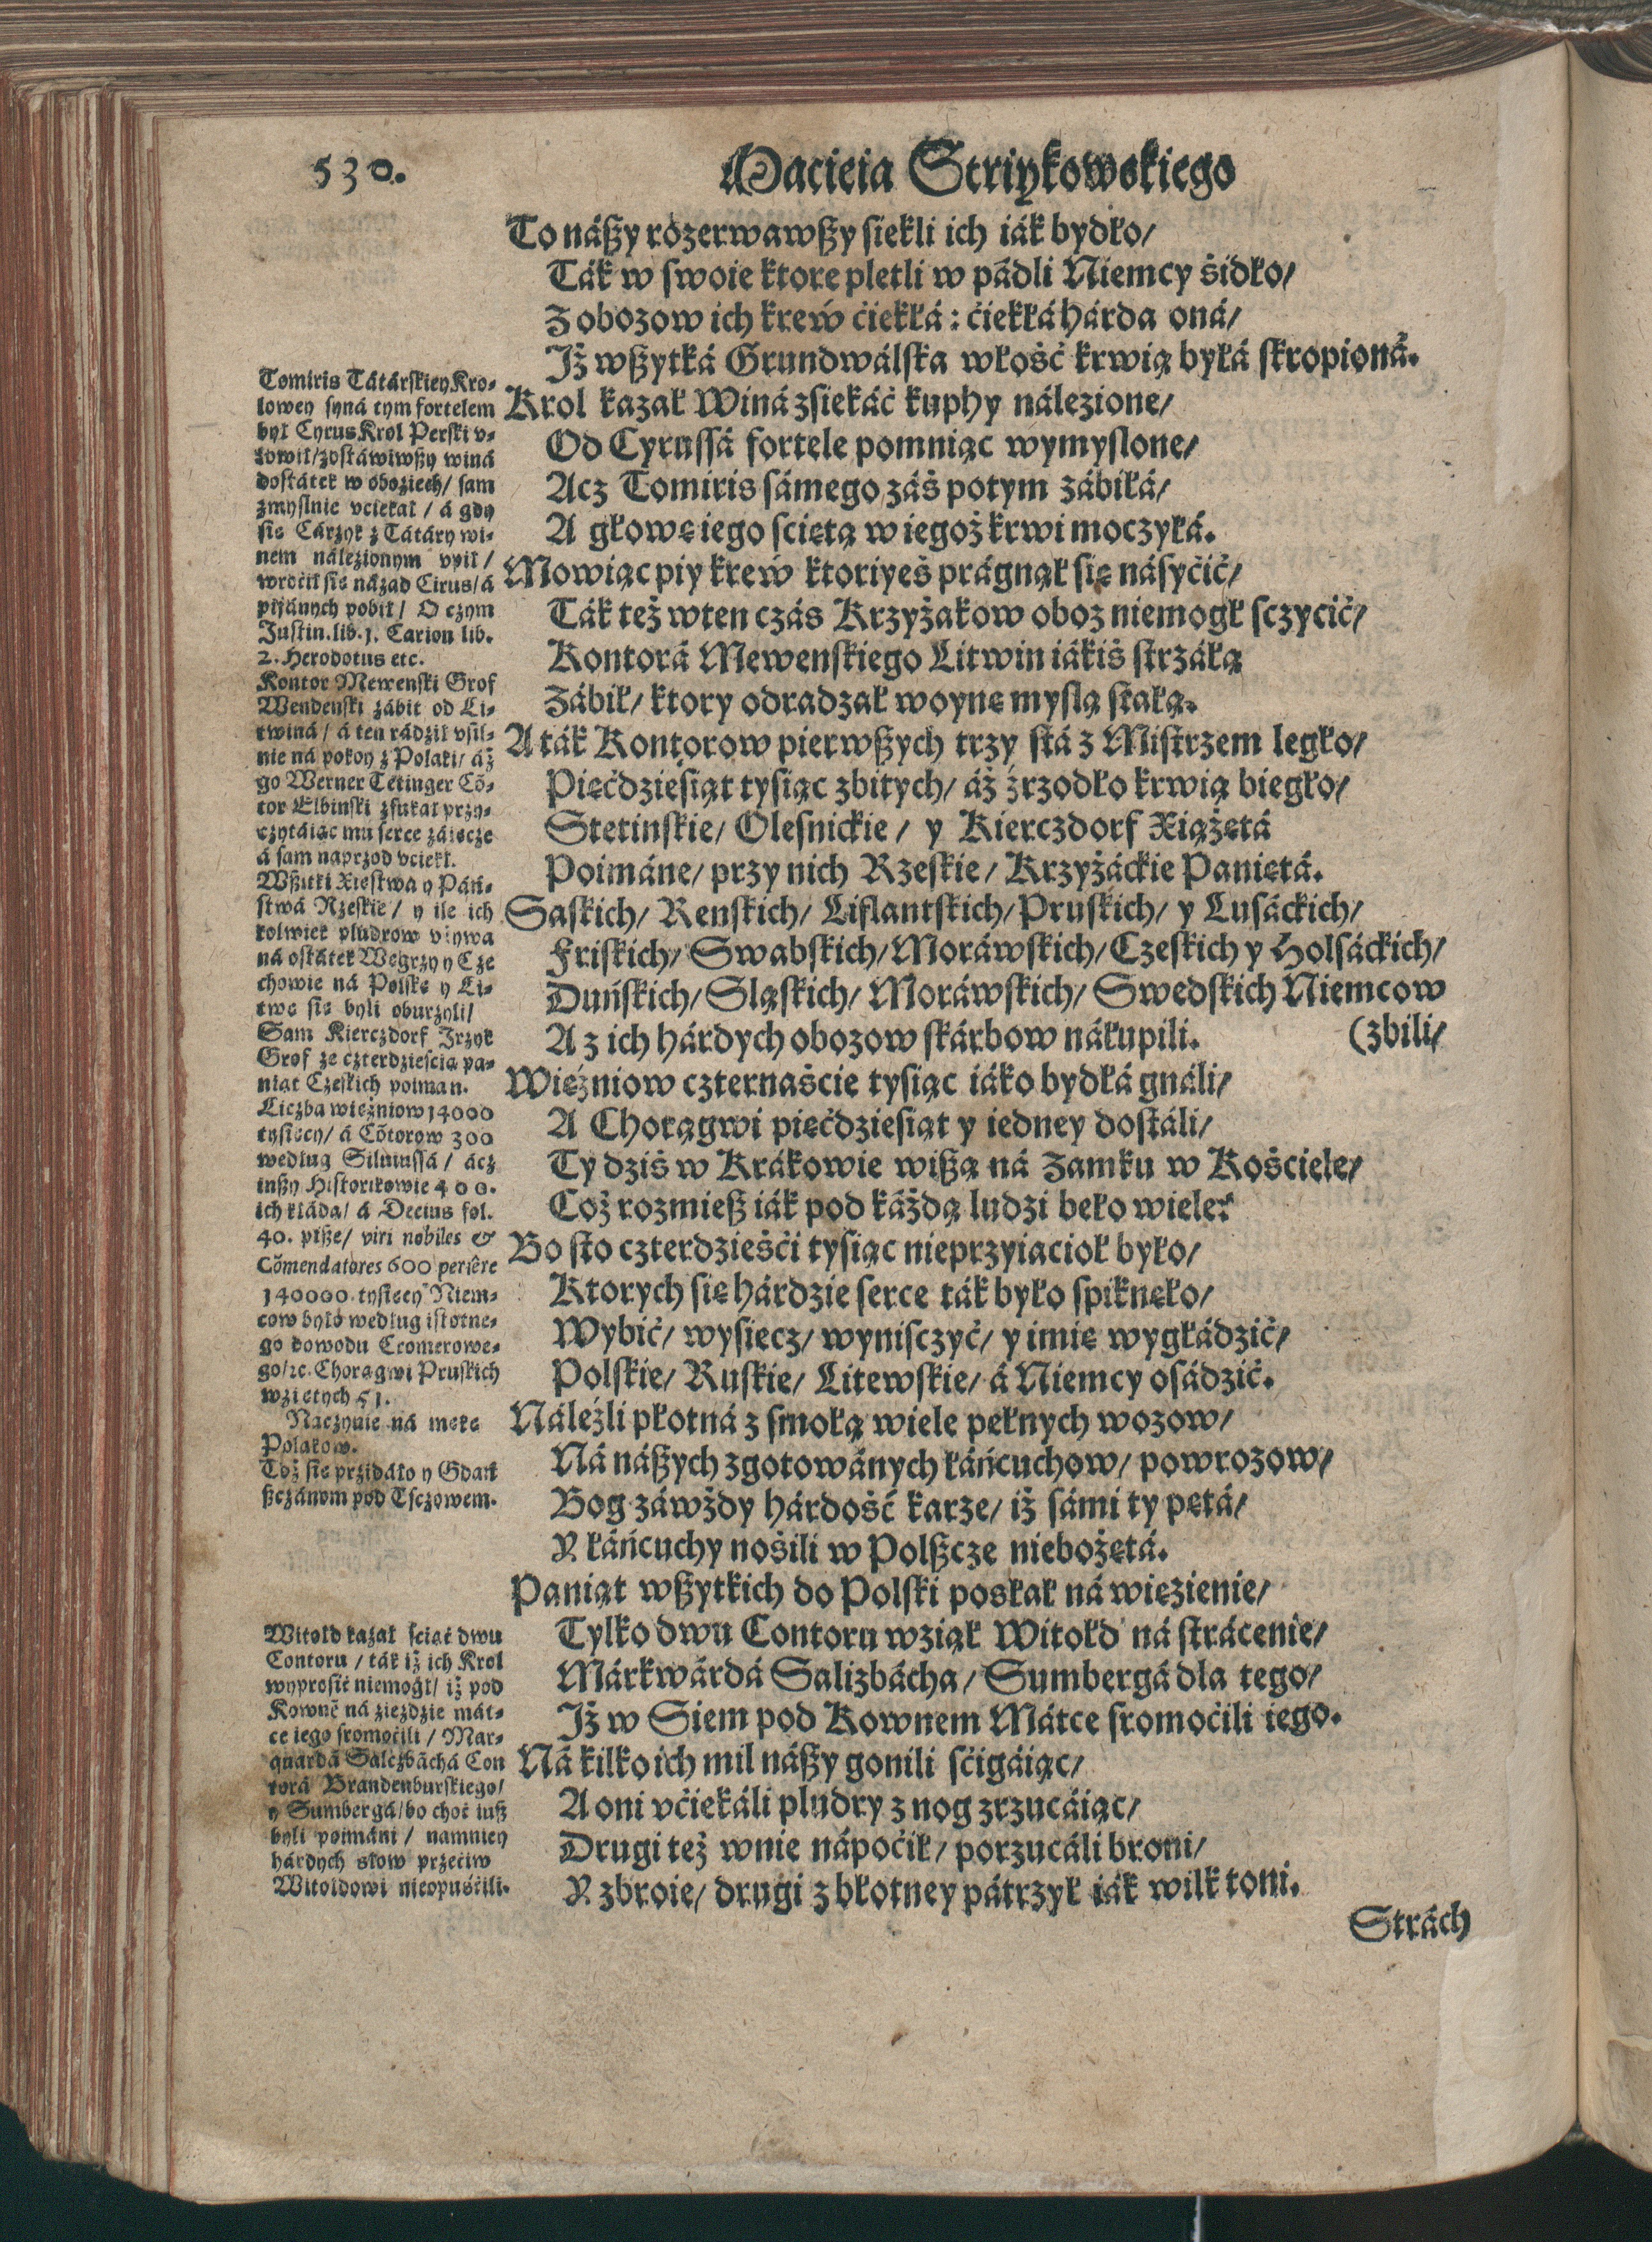 530.
Macieia Striykowskiego
To nászy rozerwawszy siekli ich iák bydło/
Ták w swoie ktore pletli w pádli Niemcy śidło/
Z obozow ich krew ćiekłá: ćiekłá hárda oná/
Iż wszytká Grundwálska włość krwią byłá skropioná.
Krol kazał Winá zsiekáć kuphy nálezione/
Od Cyrussá fortele pomniąc wymyslone/
Acz Tomiris sámego záś potym zábiłá/
A głowę iego sciętą w iegoż krwi moczyłá.
Mowiąc piy krew ktoriyeś prágnął się násyćić/
Ták też wten czás Krzyżakow oboz niemogł sczycić/
Kontorá Mewenskiego Litwin iákiś strzáłą
Zábił/ ktory odradzał woynę myslą stałą.
A ták Kontorow pierwszych trzy stá z Mistrzem legło/
Pięćdzieśiąt tysiąc zbitych/ áż źrzodło krwią biegło/
Stetinskie/ Olesnickie/ y Kierczdorf Xiążętá
Poimáne/ przy nich Rzeskie/ Krzyżáckie Paniętá.
Saskich/ Renskich/ Liflantskich/ Pruskich/ y Lusáckich/
Friskich/ Swabskich/ Moráwskich/ Czeskich y Holsáckich/
Duńskich/ Sląskich/ Moráwskich/ Swedskich Niemcow
A z ich hárdych obozow skárbow nákupili. (zbili/
Więźniow czternaście tysiąc iáko bydłá gnáli/
A Chorągwi pięćdziesiąt y iedney dostáli/
Ty dziś w Krákowie wiszą ná Zamku w Kościele/
Coż rozmiesz iák pod káżdą ludzi beło wiele?
Bo sto czterdzieśći tysiąc nieprzyiacioł było/
Ktorych się hárdzie serce ták było spiknęło/
Wybić/ wysiecz/ wynisczyć/ y imię wygłádzić/
Polskie/ Ruskie/ Litewskie/ á Niemcy osádzić.
Náleźli płotná z smołą wiele pełnych wozow/
Ná nászych zgotowánych łáńcuchow/ powrozow/
Bog záwżdy hárdość karze/ iż sámi ty pętá/
Y łáńcuchy nośili w Polszcze niebożętá.
Paniąt wszytkich do Polski posłał ná więzienie/
Tylko dwu Contoru wziął Witołd ná strácenie/
Márkwárdá Salizbácha/ Sumbergá dla tego/
Iż w Siem pod Kownem Mátce sromoćili iego.
Ná kilko ich mil nászy gonili sćigáiąc/
A oni vćiekáli pludry z nog zrzucáiąc/
Drugi też wnie nápoćił/ porzucáli broni/
Y zbroie/ drugi z błotney pátrzył iák wilk toni.
Strách
Tomiris Tátárskiey Kro-
lowey syná tym fortelem
był Cyrus Krol Perski v-
łowił/ zostáwiwszy winá
dostátek w oboziech/ sam
zmyslnie vciekał / á gdy
sie Cárzyk z Tátáry wi-
nem nálezionym vpił /
wroćił sie názad Cirus/ á
pijánych pobił / O czym
Justin. lib. 1. Carion lib.
2. Herodotus etc.
Kontor Mewenski Grof
Wendenski zábit od Li-
twiná / á ten rádził vsil-
nie ná pokoy z Polaki/ áż
go Werner Tetinger Cõ-
tor Elbinski zfukał przy-
czytáiąc mu serce záięcze
á sam naprzod vciekł.
Wszitki Xięstwa y Páń-
stwá Rzeskie / y ile ich
kolwiek pludrow vżywa
ná ostátek Węgrzy y Cze
chowie ná Polskę y Li-
twę sie byli oburzyli/
Sam Kierczdorf Jrzyk
Grof ze czterdzieścią pa-
niąt Czeskich poiman.
Liczba więźniow 14000
tysięcy/ á Cõtorow 300
według Siluiussá / ácz
inszy Historikowie 400.
ich kłádą/ á Decius fol.
40. pisze/ viri nobiles &
Cõmendatores 600 periêre
140000. tysięcy Niem-
cow było według istotne-
go dowodu Cromerowe-
go/ꝛc. Chorągwi Pruskich
wziętych 51.
Naczynie ná mękę
Polakow.
Toż sie przidáło y Gdań
szczánom pod Tsczowem.
Witołd kazał sciąć dwu
Contoru / ták iż ich Krol
wyprosić niemogł/ iż pod
Kownẽ ná zieździe mát-
ce iego sromoćili / Mar-
quardá Salczbáchá Con
torá Brandenburskiego/
y Sumbergá/ bo choć iusz
byli poimáni / namniey
hárdych słow przećiw
Witoldowi nieopuśćili.